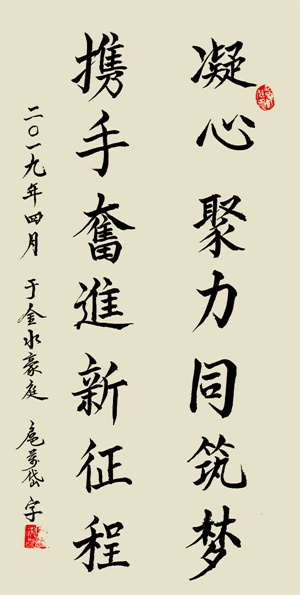 凝心聚力同筑梦
携手奮進新征程
二〇一九年四月 于金水豪庭 扈 岱字